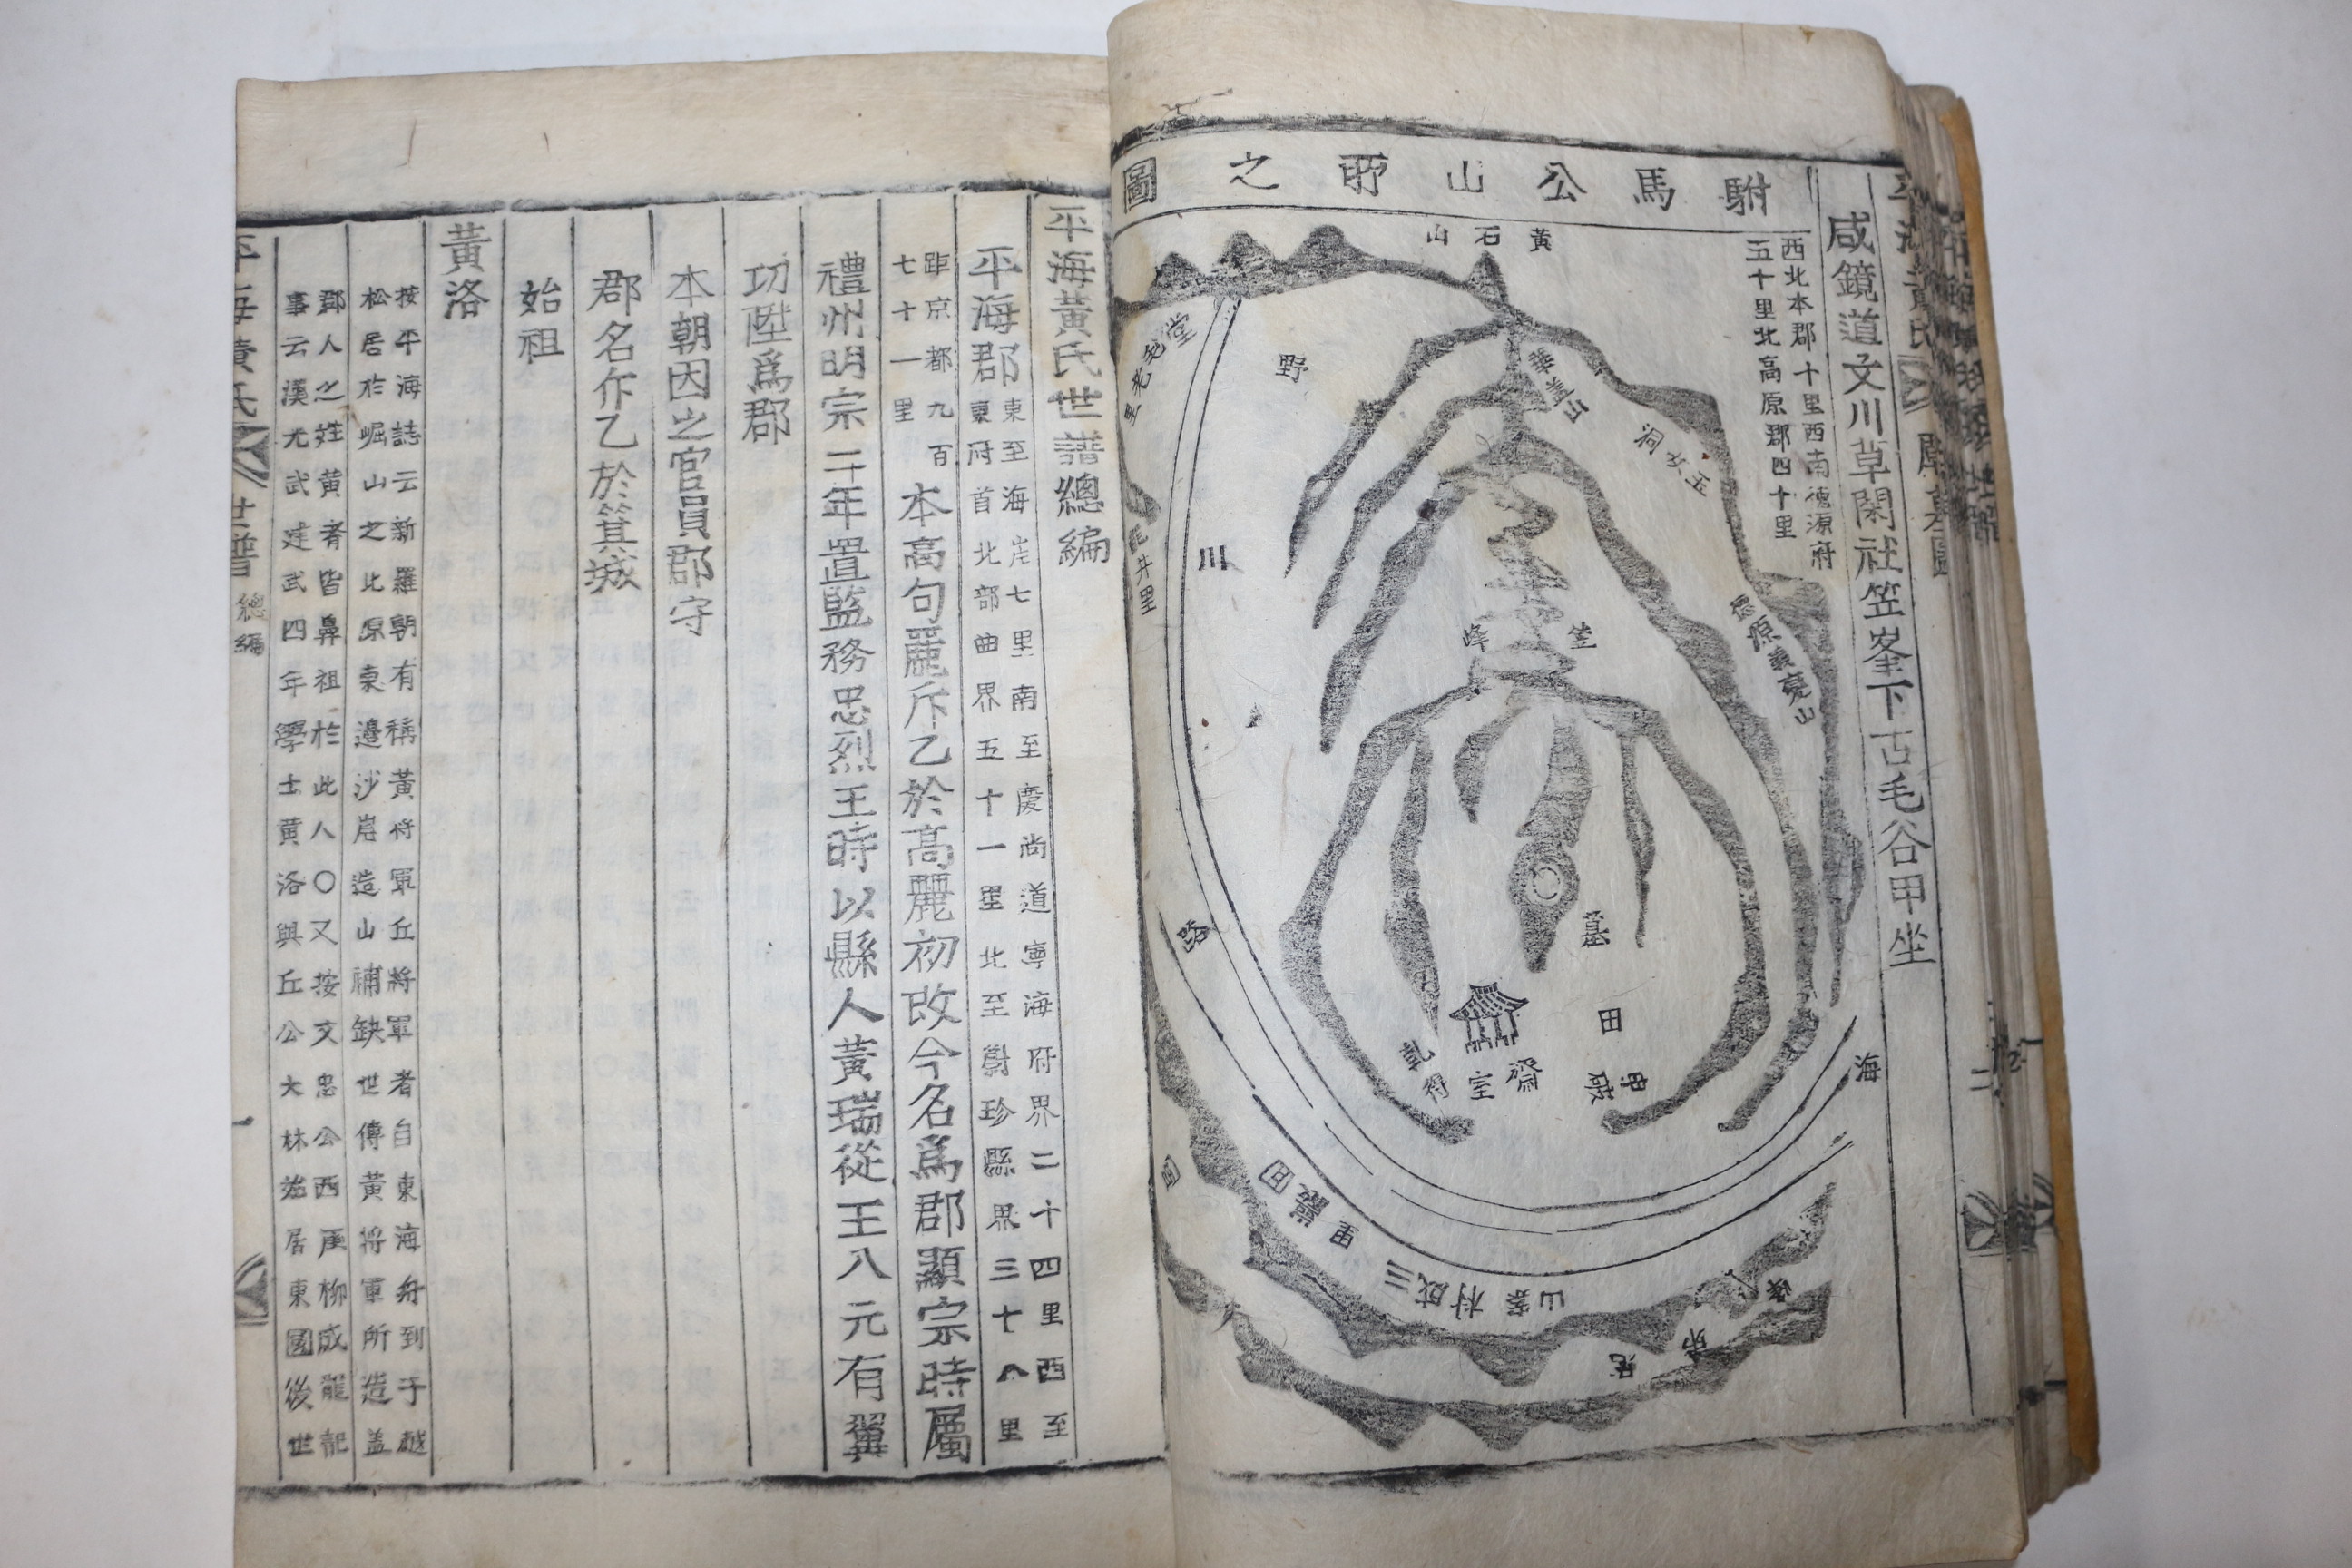 駙馬公山所之圖
咸鏡道文川草閑社笠峯下古毛谷甲坐
西北本郡十里西南德源府
五十里北高原郡四十里
黃石山
華盖山
玉女洞
德源
野
川
堂
老
里
井里
笠峰
墓
田
齋室
海
路
里
三
村
山
平海黃氏世譜總編
平海郡
東至海岸七里南至慶尚道寧海府界二十四里西至
東府首北部曲界五十一里北至蔚珍縣界三十八里
距京都九百
七十一里
本高句麗斥乙於高麗初改今名爲郡顯宗時屬
禮州明宗二年置監務忠烈王時以縣人黃瑞從王入元有翼
功陞爲郡
本朝因之官員郡守
郡名仵乙於箕城
始祖
黃洛
按平海誌云新羅朝有稱黃將軍丘將軍者自東海舟到于越
松居於崛山之北原東邉沙岸造山補缺世傳黃將軍所造盖
郡人之姓黃者皆鼻祖於此人〇又按文忠公西厓柳成龍記
事云漢光武建武四年學士黃洛與丘公大林始居東國後世
平海黃氏世譜 總編